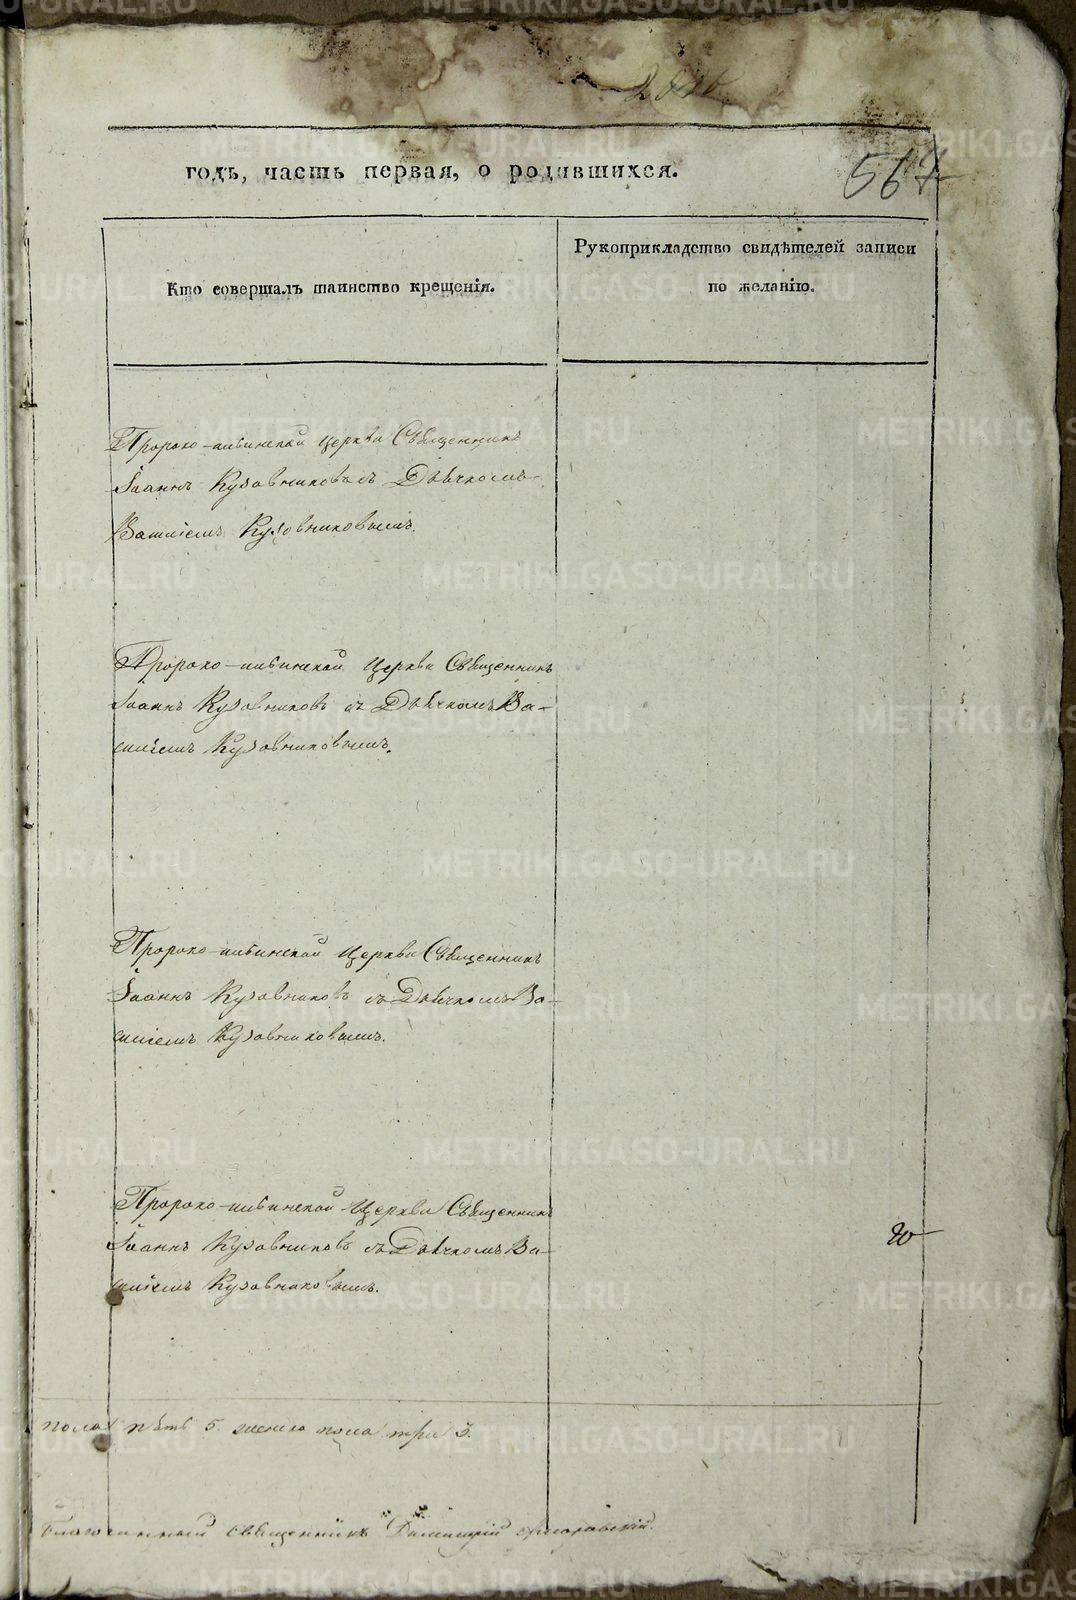 567
годъ, часть первая, о родившихся.
Кто совершалъ таинство крещенія.
Рукоприкладство свидѣтелей записи
по желанію.
Пророко-ильинской Церкви Священникъ
Іоаннъ Кузовниковъ съ Дьячкомъ
Василіемъ Кузовниковымъ.
Пророко-ильинской Церкви Священникъ
Іоаннъ Кузовниковъ съ Дьячкомъ Ва-
силіемъ Кузовниковымъ.
Пророко-ильинской Церкви Священникъ
Іоаннъ Кузовниковъ съ Дьячкомъ Ва-
силіемъ Кузовниковымъ.
Пророко-ильинской Церкви Священникъ
Іоаннъ Кузовниковъ съ Дьячкомъ Ва-
силіемъ Кузовниковымъ.
пола пять 5. женска пола три 3.
Благочинный священникъ Димитрій
METRIKI.GASO-URAL.RU